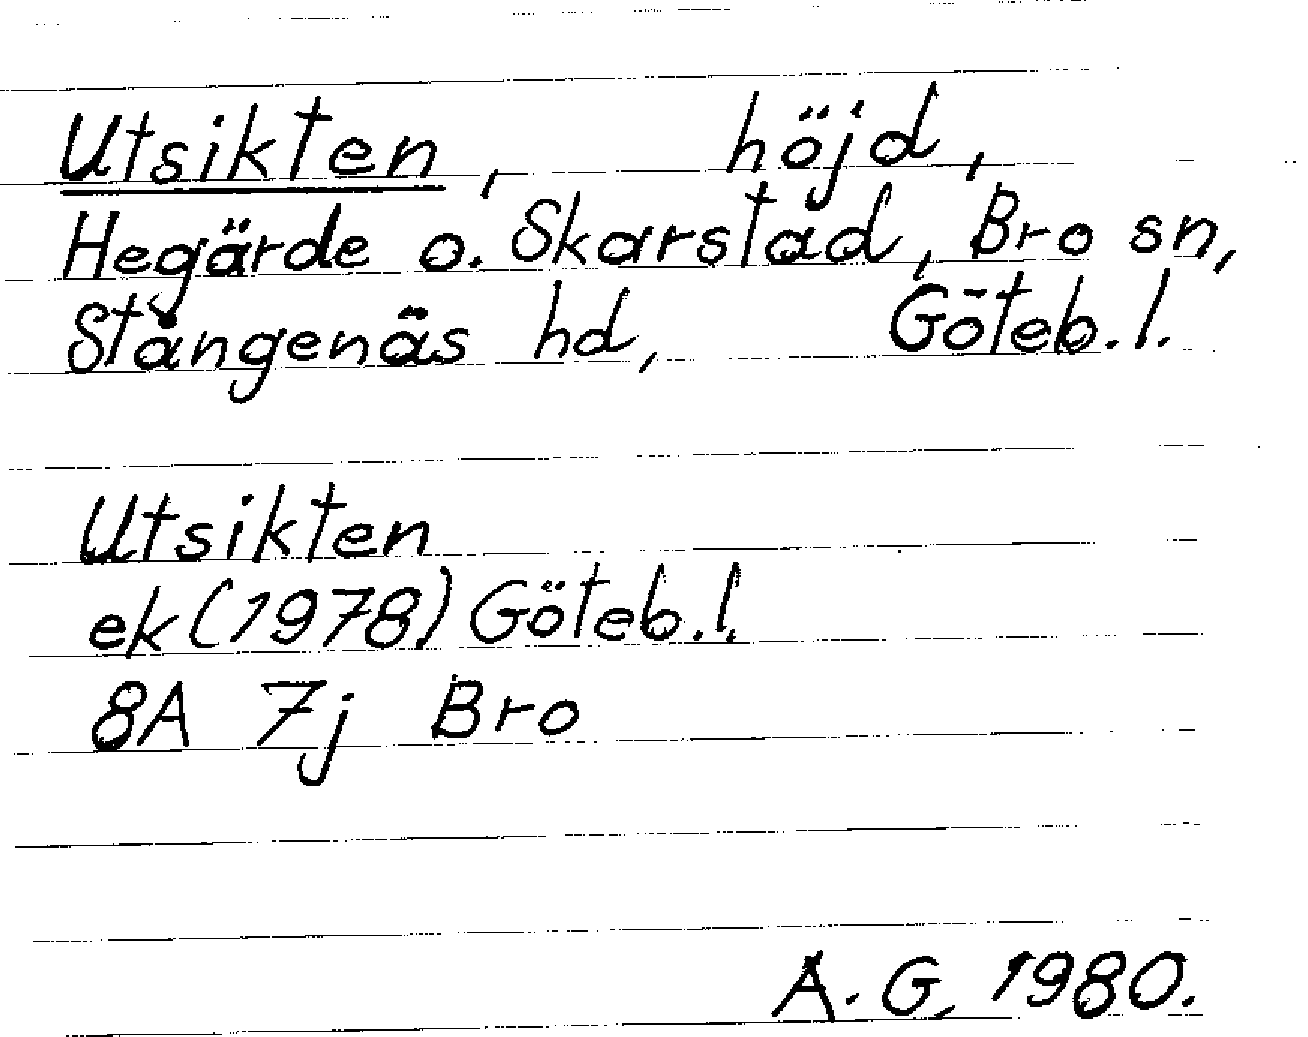 Utsikten, höjd,
Hegärde o. Skarstad, Bro sn,
Stångenäs hd, Göteb. l.
Utsikten
ek (1978) Göteb. l.
8A 7j Bro
A. G. 1980.